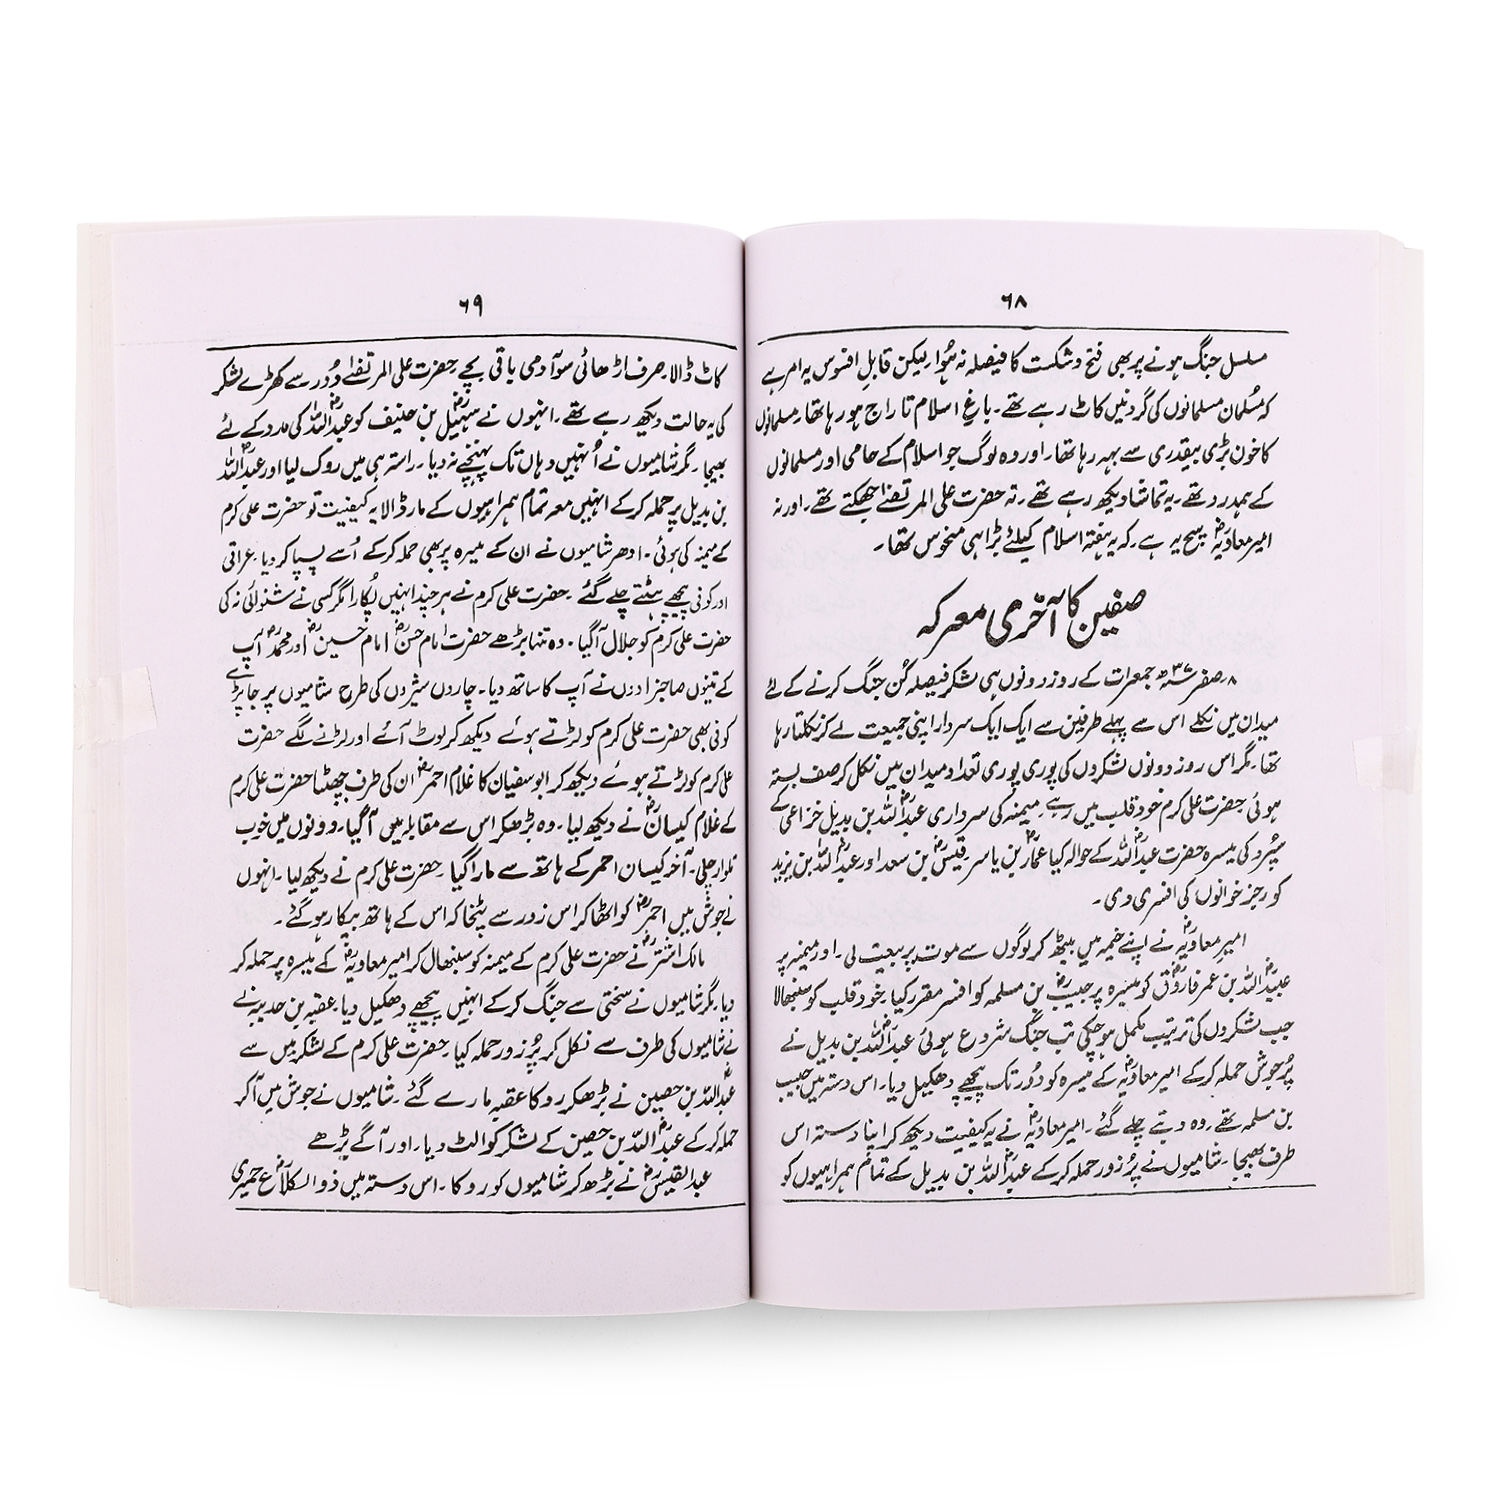 ۶۸
مسلسل جنگ ہونے پر بھی فتح و شکست کا فیصلہ نہ ہُوا۔ لیکن قابلِ افسوس یہ امر ہے
کہ مُسلمان مسلمانوں کی گردنیں کاٹ رہے تھے۔ باغِ اسلام تاراج ہو رہا تھا۔ مسلمانوں
کا خون بڑی بیقدری سے بہہ رہا تھا۔ اور وہ لوگ جو اسلام کے حامی اور مسلمانوں
کے ہمدرد تھے۔ یہ تماشا دیکھ رہے تھے۔ نہ حضرت علی المرتضےٰ جھکتے تھے۔ اور نہ
امیر معاویہؓ سچ یہ ہے۔ کہ یہ ہفتہ اسلام کیلئے بڑا ہی منحوس تھا۔
صفین کا آخری معرکہ
۸۔ صفر ۳۷ھ جمعرات کے روز دونوں ہی لشکر فیصلہ کُن جنگ کرنے کے لئے
میدان میں نکلے اس سے پہلے طرفین سے ایک ایک سردار اپنی جمیعت لے کر نکلتا رہا
تھا۔ مگر اس روز دونوں لشکروں کی پوری پوری تعداد میدان میں نکل کر صف بستہ
ہوئی حضرت علی کرم خود قلب میں رہے۔ میمنہ کی سرداری عبداللہؓ بن بدیل خزاعی کے
سپُرد کی میسرہ حضرت عبداللہؓ کے حوالہ کیا عمارؓ بن یاسر۔ قیسؓ بن سعد اور عبداللہؓ بن یزید
کو رجز خوانوں کی افسری دی۔
امیر معاویہؓ نے اپنے خیمہ میں بیٹھ کر لوگوں سے موت پر بیعت لی۔ اور میمنہ پر
عبیداللہؓ بن عمر فاروقؓ کو میسرہ پر حبیبؓ بن مسلمہ کو افسر مقرر کیا۔ خود قلب کو سنبھالا
جب لشکروں کی ترتیب مکمل ہو چکی تب جنگ شروع ہوئی عبداللہؓ بن بدیل نے
پُرجوش حملہ کر کے امیر معاویہؓ کے میسرہ کو دُور تک پیچھے دھکیل دیا۔ اس دستہ میں حبیب
بن مسلمہ تھے۔ وہ دبتے چلے گئے۔ امیر معاویہؓ نے یہ کیفیت دیکھ کر اپنا دستہ اس
طرف بھیجا۔ شامیوں نے پُر زور حملہ کر کے عبداللہؓ بن بدیل کے تمام ہمراہیوں کو
۶۹
کاٹ ڈالا۔ صرف اڑھائی سو آدمی باقی بچے۔ حضرت علی المرتضےٰ دُور سے کھڑے لشکر
کی یہ حالت دیکھ رہے تھے۔ انہوں نے سہیلؓ بن حنیف کو عبداللہؓ کی مدد کے لئے
بھیجا۔ مگر شامیوں نے اُنہیں وہاں تک پہنچنے نہ دیا۔ راستہ ہی میں روک لیا اور عبداللہؓ
بن بدیل پر حملہ کر کے انہیں معہ تمام ہمراہیوں کے مار ڈالا یہ کیفیت تو حضرت علی کرم
کے میمنہ کی ہوئی۔ ادھر شامیوں نے ان کے میسرہ پر بھی حملہ کر کے اُسے پسپا کر دیا۔ عراقی
اور کوفی پیچھے ہٹتے چلے گئے۔ حضرت علی کرم نے ہر چند انہیں پُکارا مگر کسی نے شنوائی نہ کی
حضرت علی کرم کو جلال آگیا۔ وہ تنہا بڑھے حضرت امام حسنؓ امام حسینؓ اور محمدؓ آپ
کے تینوں صاحبزادوں نے آپ کا ساتھ دیا۔ چاروں شیروں کی طرح شامیوں پر جا پڑے
کوفی بھی حضرت علی کرم کو لڑتے ہوئے دیکھ کر لوٹ آئے اور لڑنے لگے حضرت
علی کرم کو لڑتے ہوئے دیکھ کر ابو سفیان کا غلام احمرؓ ان کی طرف جھپٹا حضرت علی کرم
کے غلام کیسانؓ نے دیکھ لیا۔ وہ بڑھکر اس سے مقابلہ میں آگیا۔ دونوں میں خوب
تلوار چلی۔ آخر کیسان احمر کے ہاتھ سے مارا گیا۔ حضرت علی کرم نے دیکھ لیا۔ انہوں
نے جوش میں احمرؓ کو اٹھا کر اس زور سے پٹخا کہ اس کے ہاتھ بیکار ہو گئے۔
مالک اشترؓ نے حضرت علی کرم کے میمنہ کو سنبھال کر امیر معاویہؓ کے میسرہ پر حملہ کر
دیا۔ مگر شامیوں نے سختی سے جنگ کر کے انہیں پیچھے دھکیل دیا۔ عقبہ بن
نے شامیوں کی طرف سے نکل کر پُر زور حملہ کیا۔ حضرت علی کرم کے لشکر میں سے
عبداللہؓ بن حصین نے بڑھکر روکا عقبہ مارے گئے۔ شامیوں نے جوش میں آکر
حملہ کر کے عبداللہؓ بن حصین کے لشکر کو الٹ دیا۔ اور آگے بڑھے
عبدالقیسؓ نے بڑھ کر شامیوں کو روکا۔ اس دستہ میں ذوالکلاعؓ حمیری